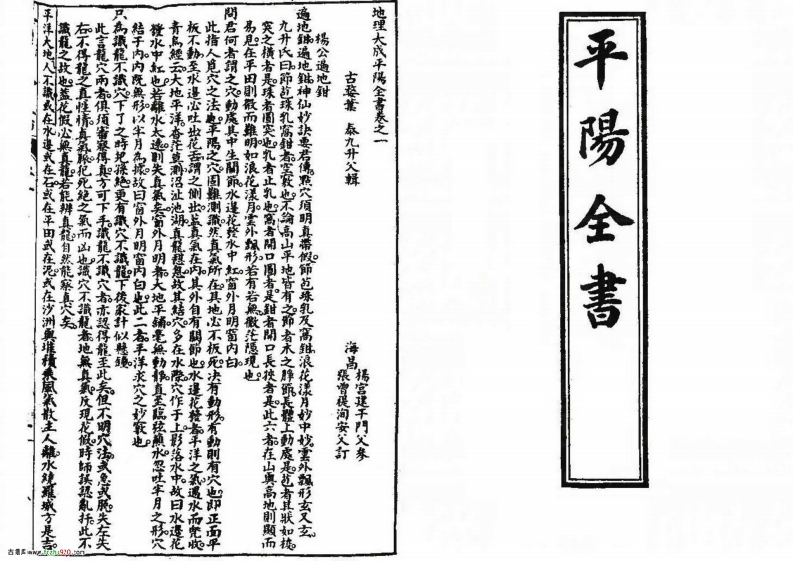 平陽全書
地理大成平陽全書卷之一
古婺葉 泰九升父輯
海昌
楊宫建子門父參
張曾禔洵安父訂
楊公遍地鉗
遍地鉗遍地鉗神仙妙訣要君傳點穴須明真帶假節苞珠乳及窩鉗浪花漾月妙中妙雲外飄形玄又玄
九升氏曰節苞珠乳窩鉗者空竅也不論高山平地皆有之節者木之
突之橫者是珠者圓突也乳者止乳也窩者開口圓者是鉗者開口長狹者是此六者在山與高地則顯而
易見在平田則微而難明如浪花漾月雲外飄形若有若無微茫隱現也
問君何者謂之穴動處其中生關節水邊花發水中紅窗外月明窗內白
此指人覓穴之法也平陽之穴固難測識然真氣所在其地必不板死決有動形有動則有穴也即正面平
板不動至水邊必吐出花舌謂之側出蓋真氣在內其外自有關節也水邊花發者平洋之氣遇水而兜收
青烏經云大地平洋杳茫莫測沼沚池湖真龍憩息故其結穴多在水際穴作于上影落水中故曰水邊花
發水中紅也若離水太遠則失真氣矣窗外月明者大地平鋪毫無動靜直至臨弦顯水忽吐半月之形穴
結于內內既無形以半月為據故曰窗外月明窗內白也此二者平洋求穴之妙竅也
只為識龍不識穴下了之時犯孫絕更有識穴不識龍下後家計似懸鐘
此言龍穴兩者俱須審察得真方可下手識龍不識穴者亦認得龍至此矣但不明穴法或急或脱失左失
右不得龍之真性情真氣脈犯死絕之氣而凶也識穴不識龍者地無真氣反現花假時師誤認亂扦此不
識龍之故也蓋花假必無真龍若能辨真龍自然能察真穴矣
平洋大地人不識或在水邊或在石或在平田或在泥或在沙洲與堆積乘風氣散主人離水繞羅城方是吉
古籍库 www.